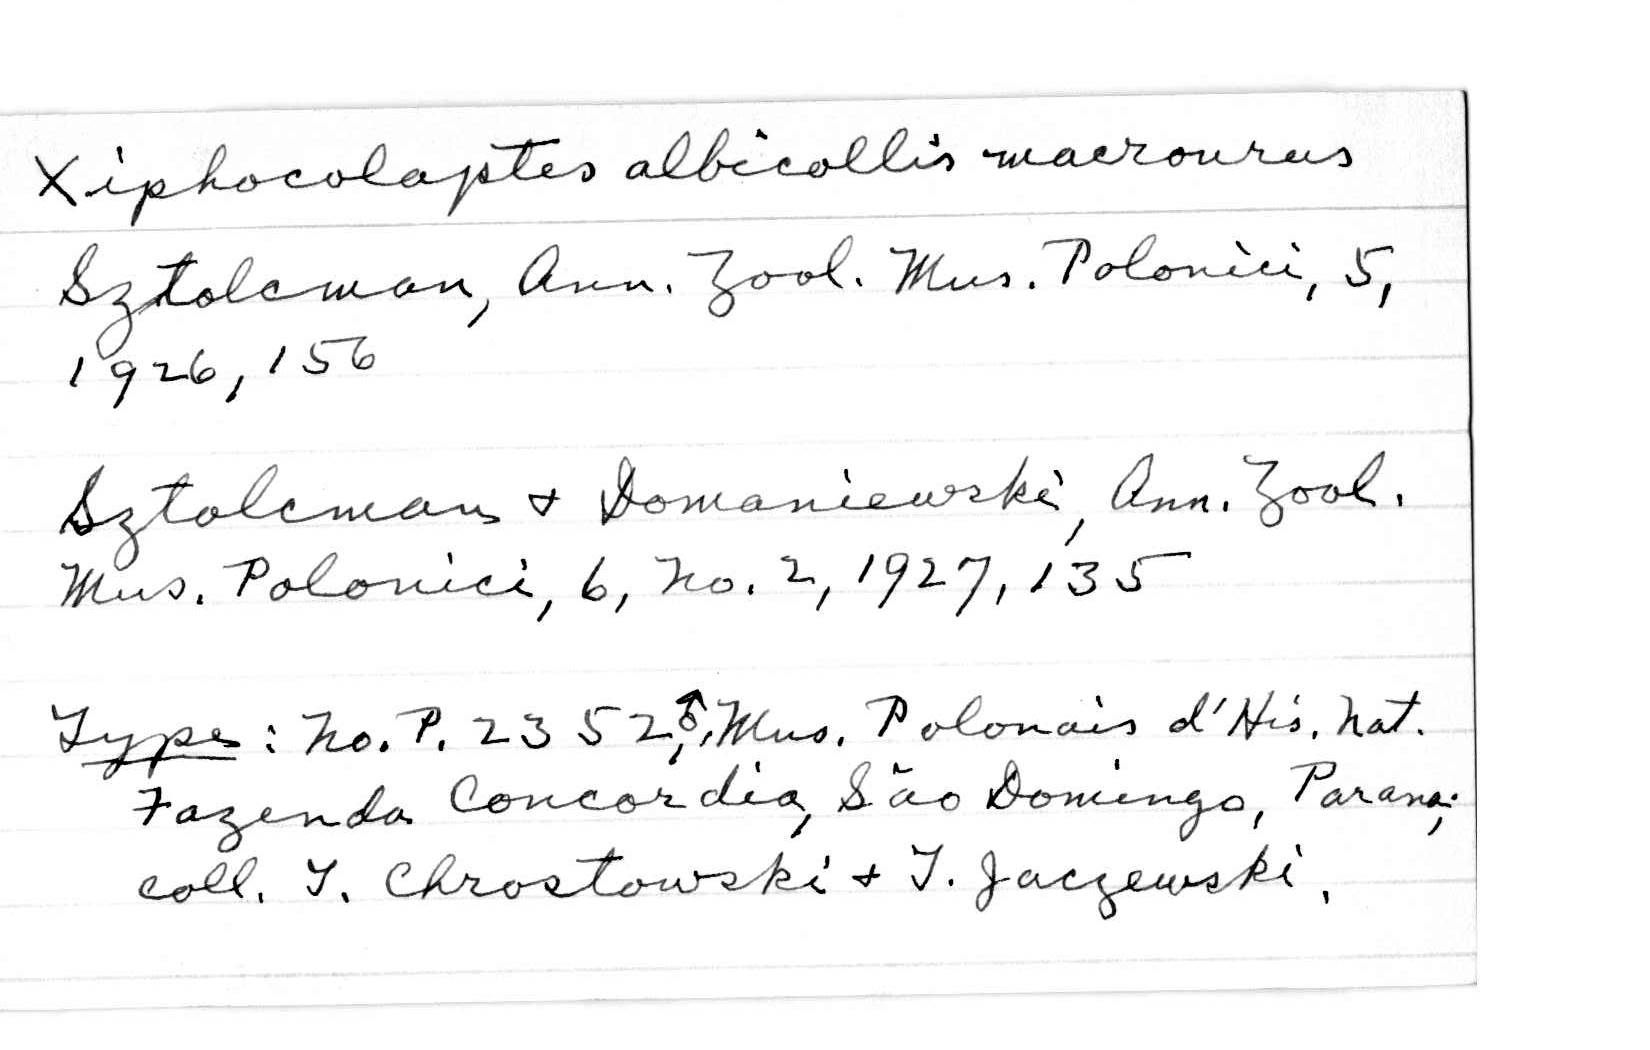 Xiphocolaptes albicollis macrourus
Sztolcman, Ann. Zool. Mus. Polonici, 5,
1926, 156
Sztolcman & Domaniewski, Ann. Zool.
Mus. Polonici, 6, No. 2, 1927, 135
Type: No. P. 2352, ♂, Mus. Polonais d'His. Nat.
Fazenda Concordia, São Domingo, Parana;
coll. T. Chrostowski & T. Jaczewski.